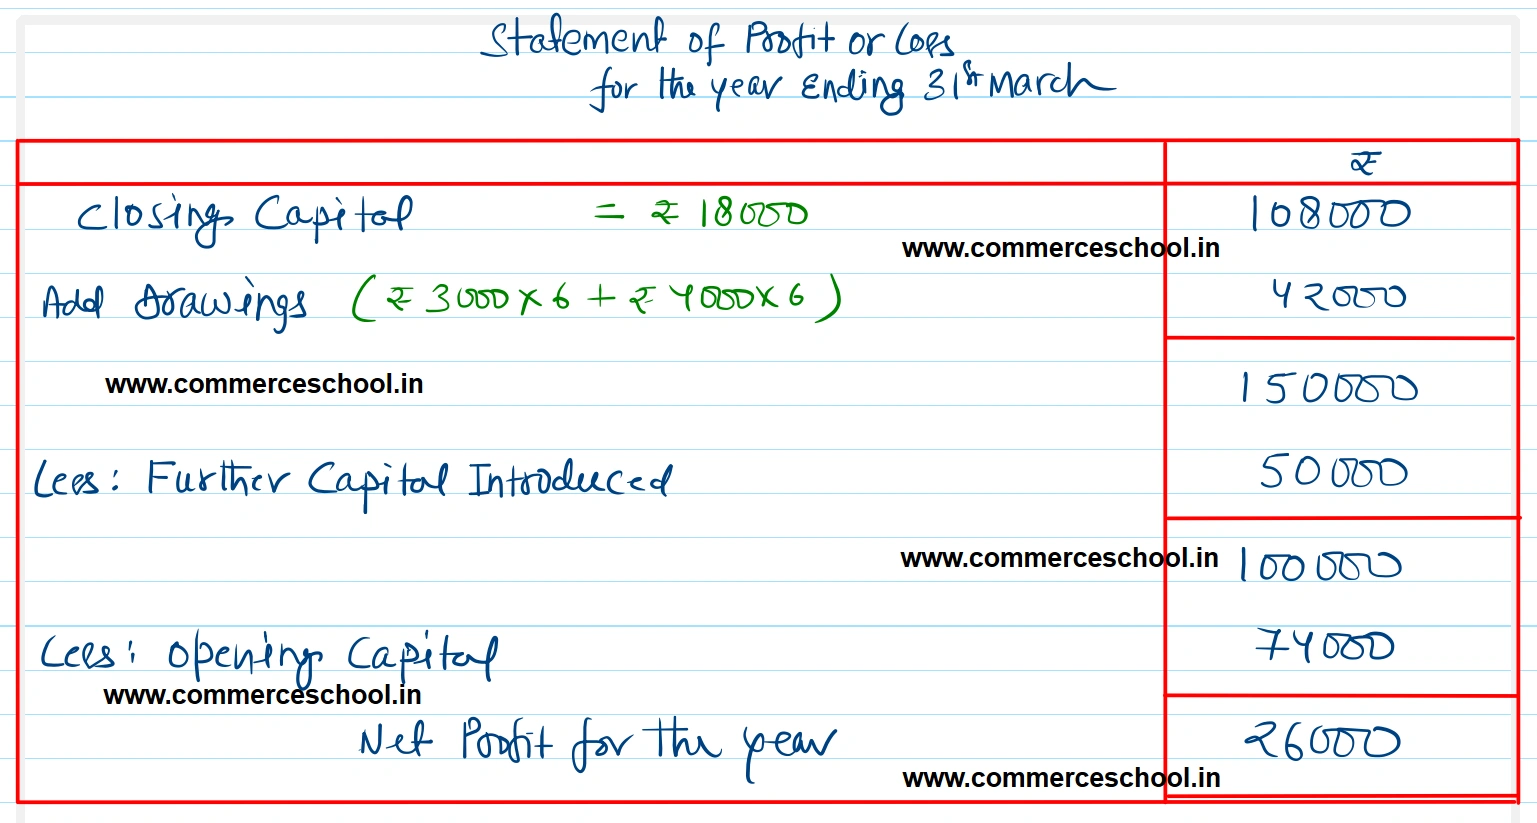 Statement of Profit or Loss
for the year Ending 31st March
₹
Closing Capital = ₹ 18000 108000
www.commerceschool.in
Add Drawings (₹ 3000 × 6 + ₹ 4000 × 6) 42000
www.commerceschool.in 150000
Less: Further Capital Introduced 50000
www.commerceschool.in 100000
Less: Opening Capital 74000
www.commerceschool.in
Net Profit for the year 26000
www.commerceschool.in